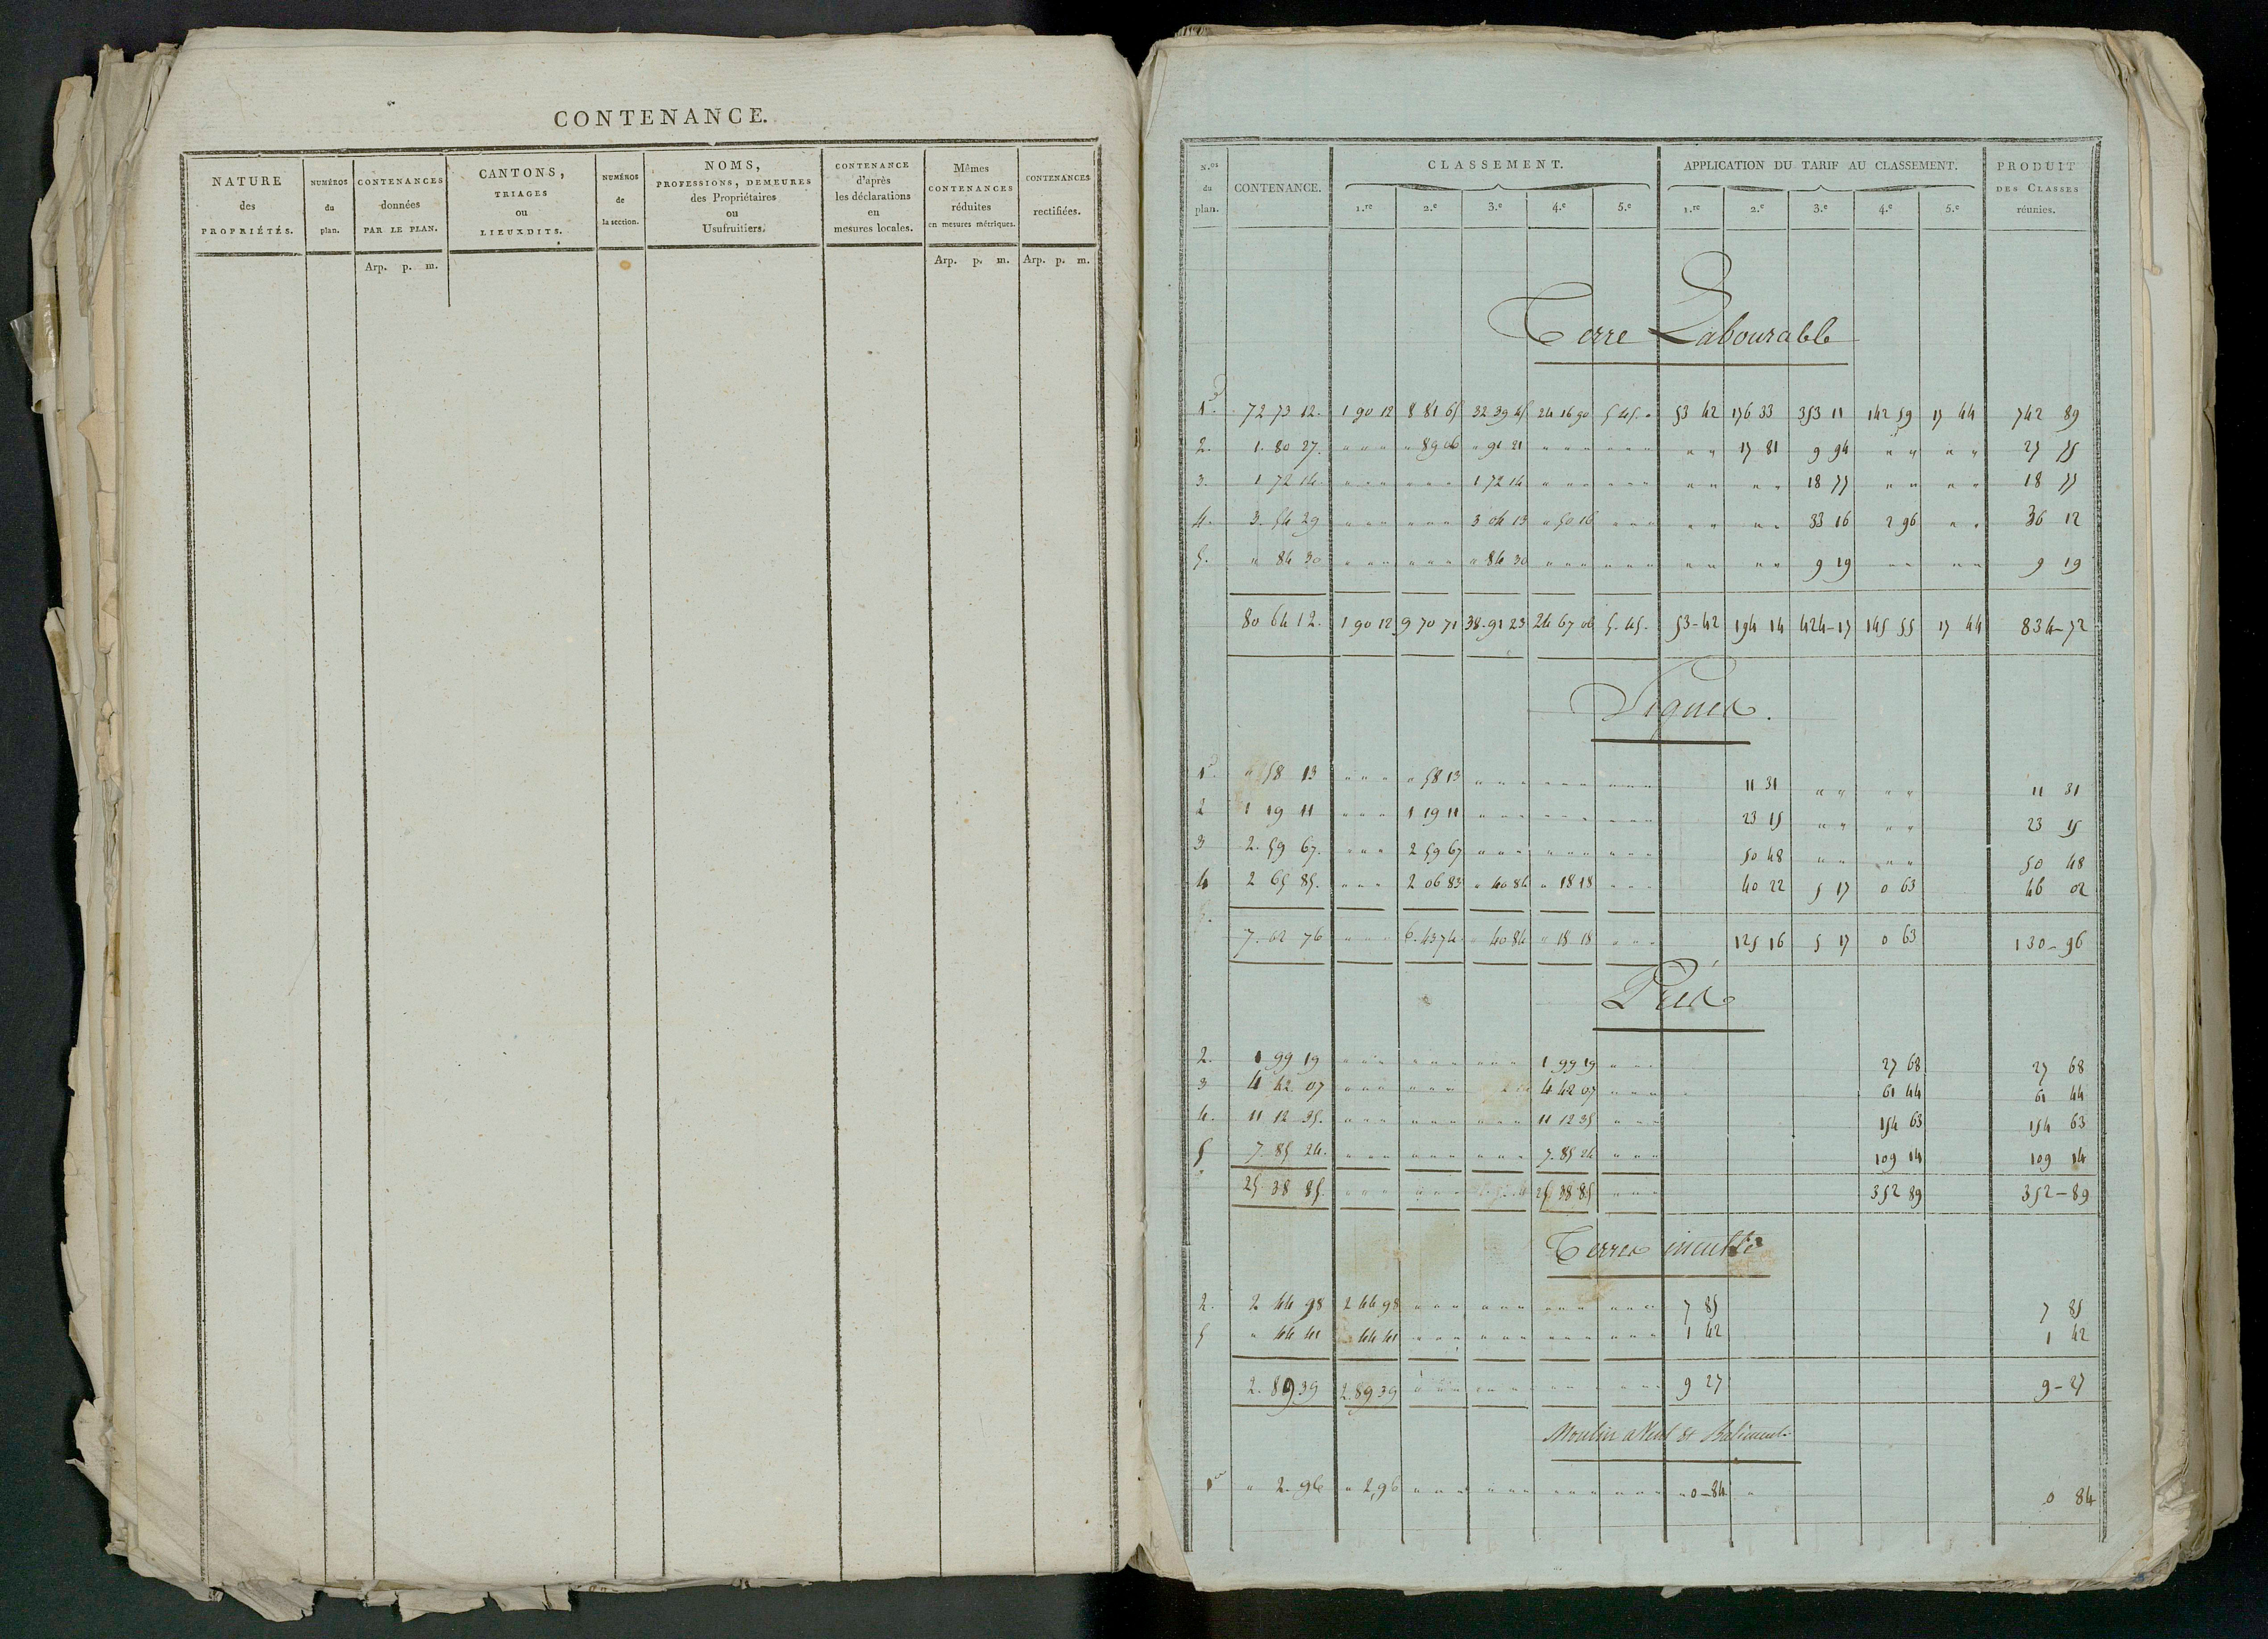 CONTENANCE.
NATURE des PROPRIÉTÉS.
NUMÉROS du plan.
CONTENANCES données PAR LE PLAN.
CANTONS, TRIAGES ou LIEUXDITS.
NUMÉROS de la section.
NOMS, PROFESSIONS, DEMEURES des Propriétaires ou Usufruitiers.
CONTENANCE d'après les déclarations en mesures locales.
Mêmes CONTENANCES réduites en mesures métriques.
CONTENANCES rectifiées.
Arp. p. m.
Arp. p. m.
Arp. p. m.
N.os du plan.
CONTENANCE.
CLASSEMENT.
APPLICATION DU TARIF AU CLASSEMENT.
PRODUIT DES CLASSES réunies.
1.re 2.e 3.e 4.e 5.e 1.re 2.e 3.e 4.e 5.e
Terre Labourable
1. 72 73 12. 1 90 12 8 81 65 32 39 45 24 16 90 5 45 " 53 42 176 33 353 11 142 59 17 44 742 89
2. 1. 80 27. " " " " 89 06 " 91 21 " " " " " " " " 17 81 9 94 " " " " 27 75
3. 1 72 14. " " " " " " 1 72 14 " " " " " " " " " " 18 77 " " " " 18 77
4. 3. 54 29 " " " " " " 3 04 13 " 50 16 " " " " " " " 33 16 2 96 " " 36 12
5. " 84 30 " " " " " " " 84 30 " " " " " " " " " " 9 19 " " " " 9 19
80 64 12. 1 90 12 9 70 71 38. 91 23 24 67 06 5. 45. 53-42 194 14 424-17 145 55 17 44 834-72
Vignes.
1. " 58 13 " " " " 58 13 " " " " " " " " " 11 31 " " " " 11 31
2 1 19 11 " " " 1 19 11 " " " " " " " " " 23 15 " " " " 23 15
3 2. 59 67. " " " 2 59 67 " " " " " " " " " 50 48 " " " " 50 48
4 2 65 85. " " " 2 06 83 " 40 84 " 18 18 " " " 40 22 5 17 0 63 46 02
5.
7. 02 76 " " " 6. 43 74 " 40 84 " 18 18 " " " 125 16 5 17 0 63 130-96
Prés
2. 1 99 19 " " " " " " " " " 1 99 19 " " " 27 68 27 68
3 4 42. 07 " " " " " " 4 42 07 " " " 61 44 61 44
4. 11 12 35. " " " " " " " " " 11 12 35 " " " 154 63 154 63
5 7. 85 24. " " " " " " " " " 7. 85 24 " " " 109 14 109 14
25 38 85. " " " " " " 25 38 85 " " " 352 89 352-89
Terres inculte
2. 2 44 98 2 44 98 " " " " " " " " " " " " 7 85 7 85
5 " 44 41 " 44 41 " " " " " " " " " " " " 1 42 1 42
2. 89 39 2. 89 39 " " " " " " " " " " " " 9 27 9-27
Moulin a Vent et Batiment
1 " 2. 96 " 2. 96 " " " " " " " " " " " " " 0-84 " 0 84